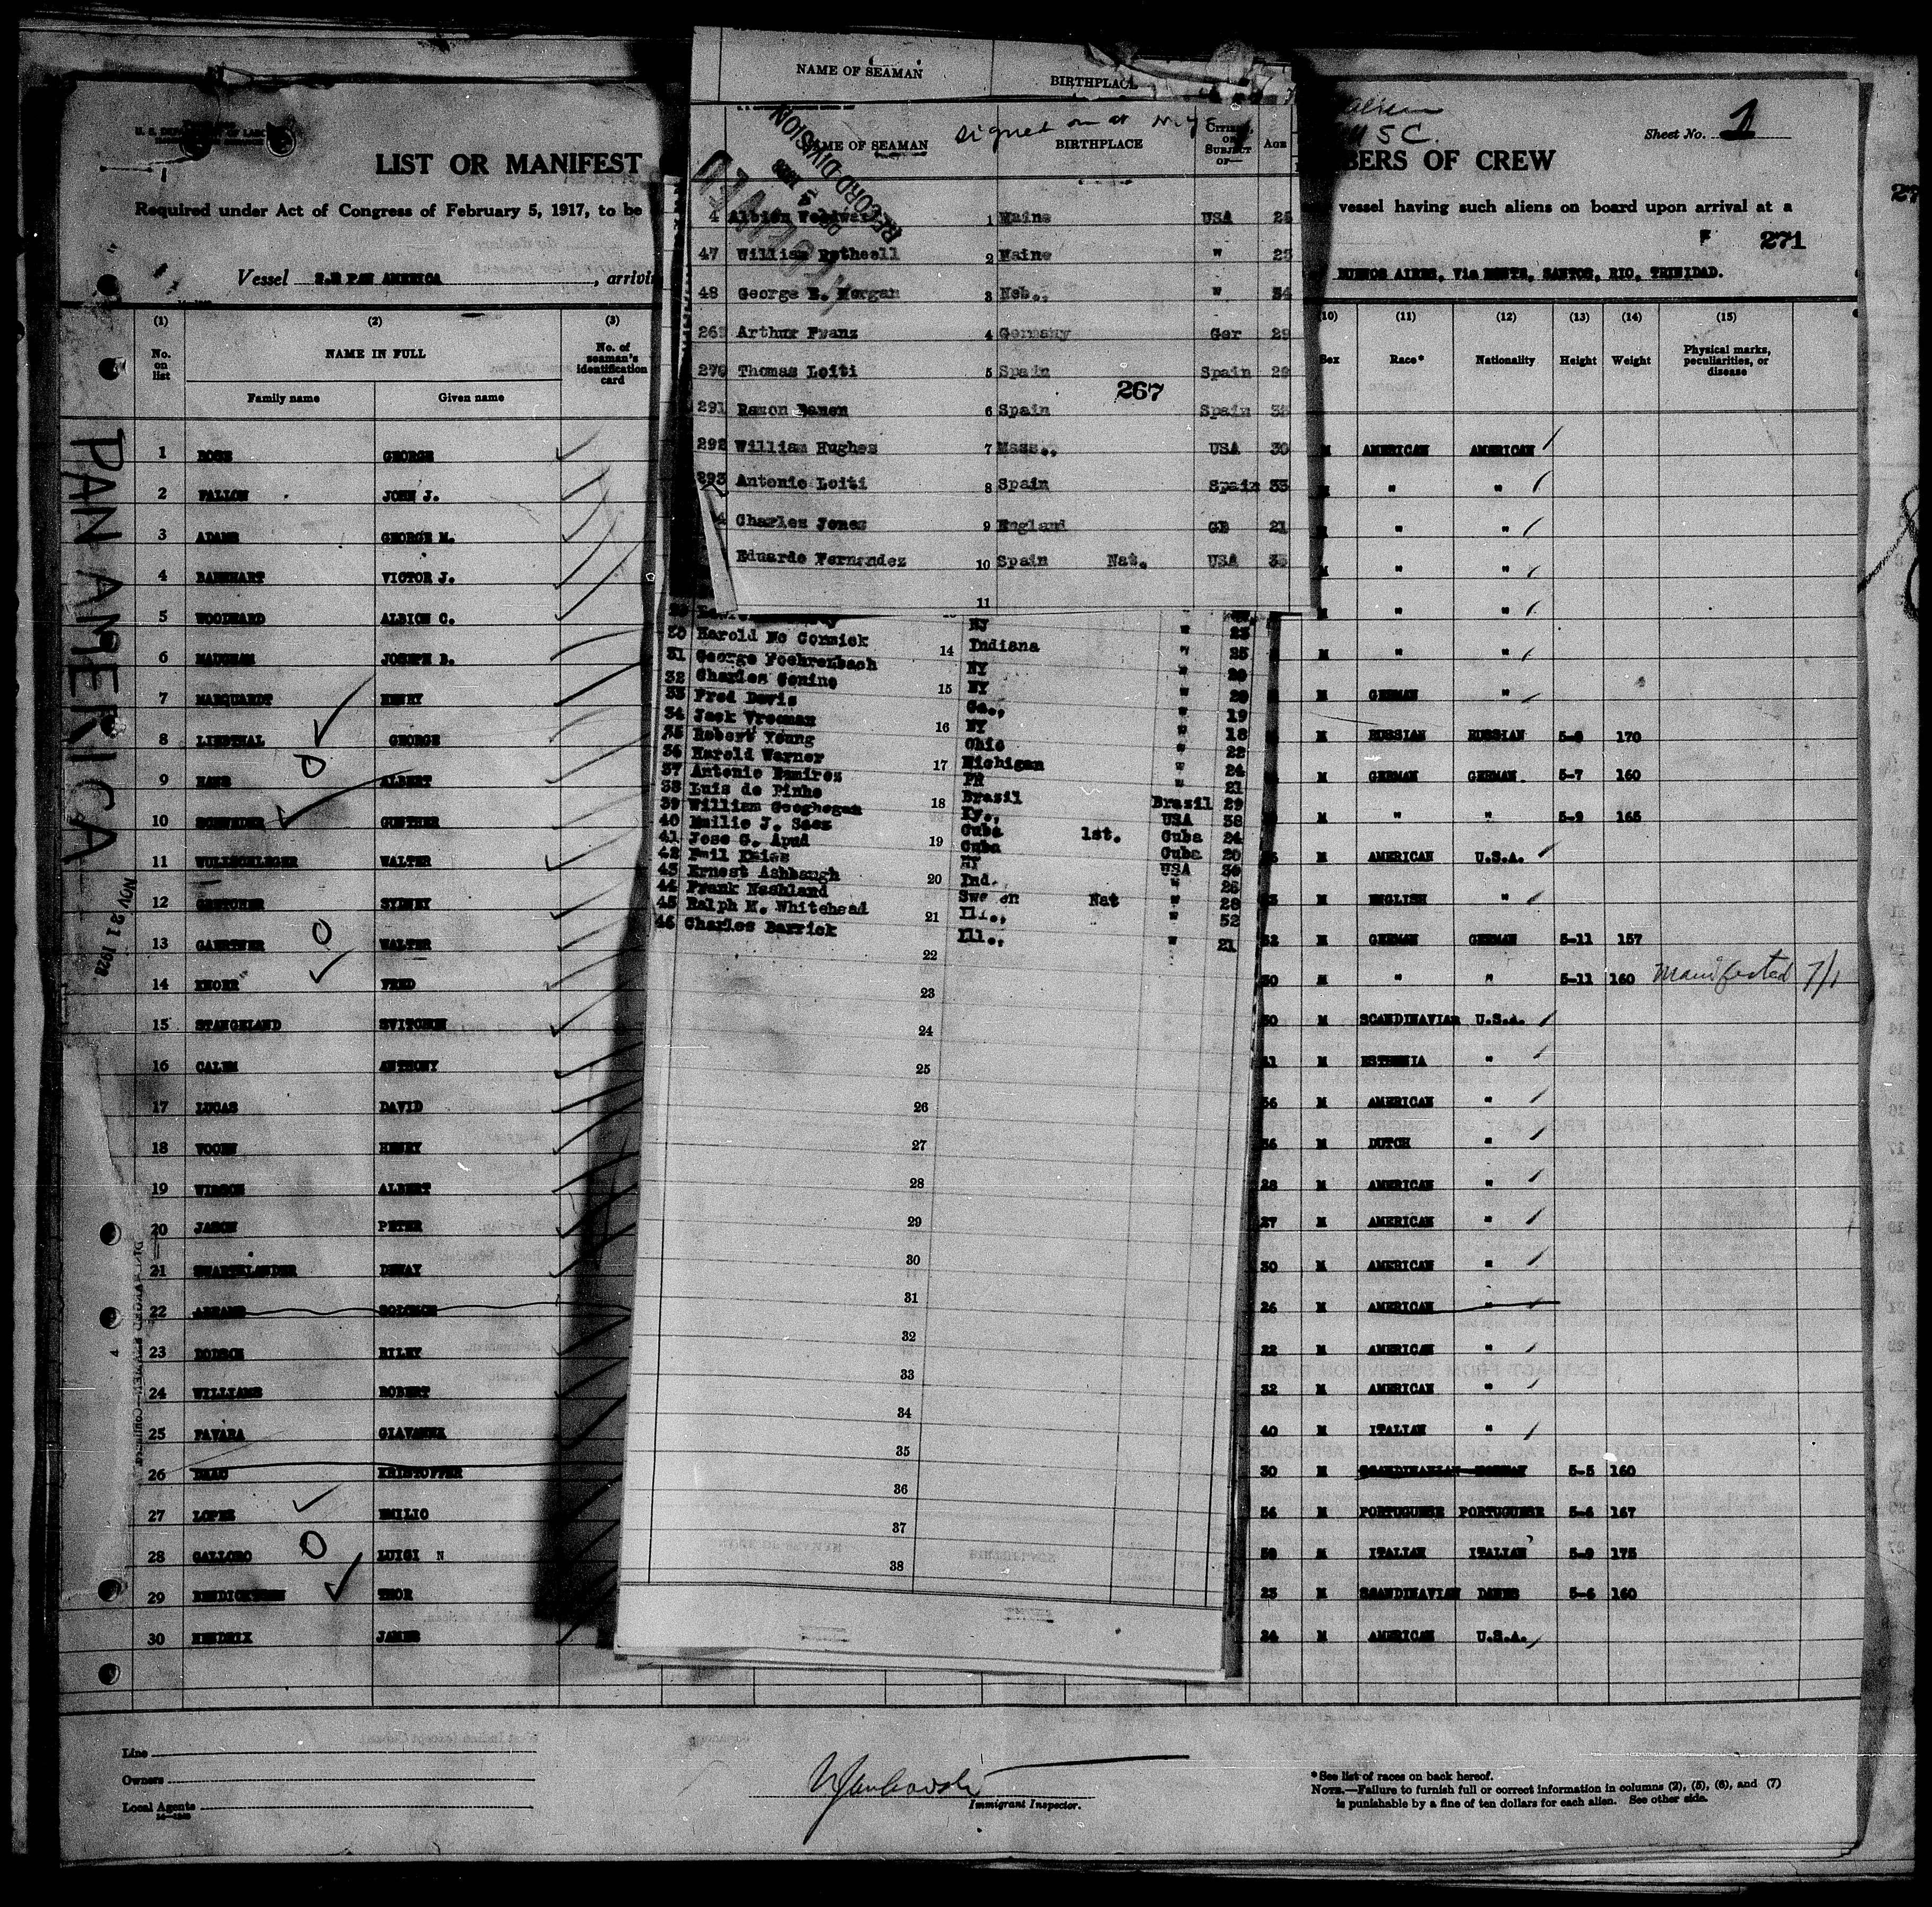 NAME OF SEAMAN BIRTHPLACE
NAME OF SEAMAN BIRTHPLACE CITIZEN OR SUBJECT OF— AGE
signed on at N.Y.
RECORD DIVISION
RECEIVED
4 Albion 1 Maine USA
47 William 2 Maine " 25
48 George E. Morgan 3 Neb., " 34
Arthur Franz 4 Germany Ger 29
270 Thomas Loiti 5 Spain Spain 29
267
291 Ramon 6 Spain Spain
292 William Hughes 7 Mass., USA 30
293 Antonio Loiti 8 Spain Spain 33
Charles Jones 9 England GB 21
Eduardo Fernandez 10 Spain Nat. USA 35
11
NY " 23
30 Harold Mc Cormick 14 Indiana " 25
31 George Foehrenbach NY " 20
32 Charles Genine 15 NY " 20
33 Fred Davis Ga., " 19
34 Jack Vrooman 16 NY " 18
35 Robert Young Ohio " 22
36 Harold Warner 17 Michigan " 24
37 Antonio Ramirez PR " 21
38 Luis de Pinho 18 Brasil Brazil 29
39 William Geoghegan Ky., USA 38
40 Mallie J. Saez Cuba 1st. Cuba 24
41 Jose G. Apud 19 Cuba Cuba 20
42 NY USA 30
43 Ernest Ashbaugh 20 Ind. " 26
44 Frank Nashland Sweden Nat " 28
45 Ralph M. Whitehead 21 Ill., " 52
46 Charles Barrick Ill., " 21
22
23
24
25
26
27
28
29
30
31
32
33
34
35
36
37
38
LIST OR MANIFEST
BERS OF CREW
Sheet No. 1
5 C.
Required under Act of Congress of February 5, 1917, to be
vessel having such aliens on board upon arrival at a
271
Vessel S.S PAN AMERICA, arrivin
BUENOS AIRES, Via MONTE, SANTOS, RIO, TRINIDAD.
(1) (2) (3) (10) (11) (12) (13) (14) (15)
No. on list NAME IN FULL No. of seaman's identification card Sex Race* Nationality Height Weight Physical marks, peculiarities, or disease
Family name Given name
PAN AMERICA
NOV 21 1928
1 ROSE GEORGE M AMERICAN AMERICAN
2 FALLON JOHN J. " "
3 ADAMS GEORGE M. " "
4 BARNHART VICTOR J. M " "
5 WOODWARD ALBION C. M " "
6 JOSEPH B. M " "
7 MARQUARDT HENRY M GERMAN "
8 LINDTHAL GEORGE M RUSSIAN RUSSIAN 170
9 HANS ALBERT M GERMAN GERMAN 5-7 160
10 GUNTHER M " " 5-9 165
11 WULLSCHLEGER WALTER M AMERICAN U.S.A.
12 SYDNEY M ENGLISH "
13 GAERTNER WALTER 32 M GERMAN GERMAN 5-11 157
14 KNORR FRED 30 M " " 5-11 160 Manifested 7/1
15 STANGELAND 30 M SCANDINAVIAN U.S.A.
16 CALEM ANTHONY 41 M ESTHONIA "
17 LUCAS DAVID 36 M AMERICAN "
18 HENRY 36 M DUTCH "
19 ALBERT 28 M AMERICAN "
20 JASON PETER 27 M AMERICAN "
21 SWARTSLANDER DEWAY 30 M AMERICAN "
22 ABRAMS SOLOMON 26 M AMERICAN "
23 DODSON RILEY 22 M AMERICAN "
24 WILLIAMS ROBERT 32 M AMERICAN "
25 FAVARA 40 M ITALIAN "
26 KRISTOFFER 30 M SCANDINAVIAN NORWAY 5-5 160
27 LOPES EMILIO 54 M PORTUGUESE PORTUGUESE 5-6 167
28 GALLORO LUIGI N M ITALIAN ITALIAN 5-9 175
29 THOR 23 M SCANDINAVIAN DANES 5-6 160
30 HENDRIX JAMES 24 M AMERICAN U.S.A.
Line
Owners
Local Agents
Immigrant Inspector.
*See list of races on back hereof.
NOTE.—Failure to furnish full or correct information in columns (2), (5), (6), and (7)
is punishable by a fine of ten dollars for each alien. See other side.